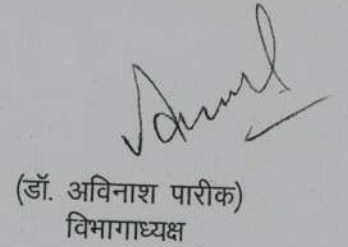 (डॉ. अविनाश पारीक)
विभागाध्यक्ष